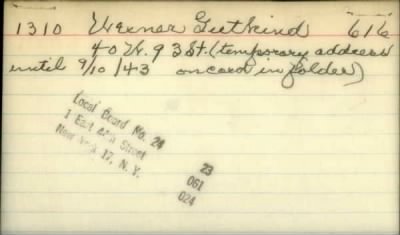 1310 Werner Gutkind 616
40 W. 93 St. (temporary address
until 9/10/43 on card in folder)
Local Board No. 24
1 East 44th Street
New York 17, N. Y.
23
061
024